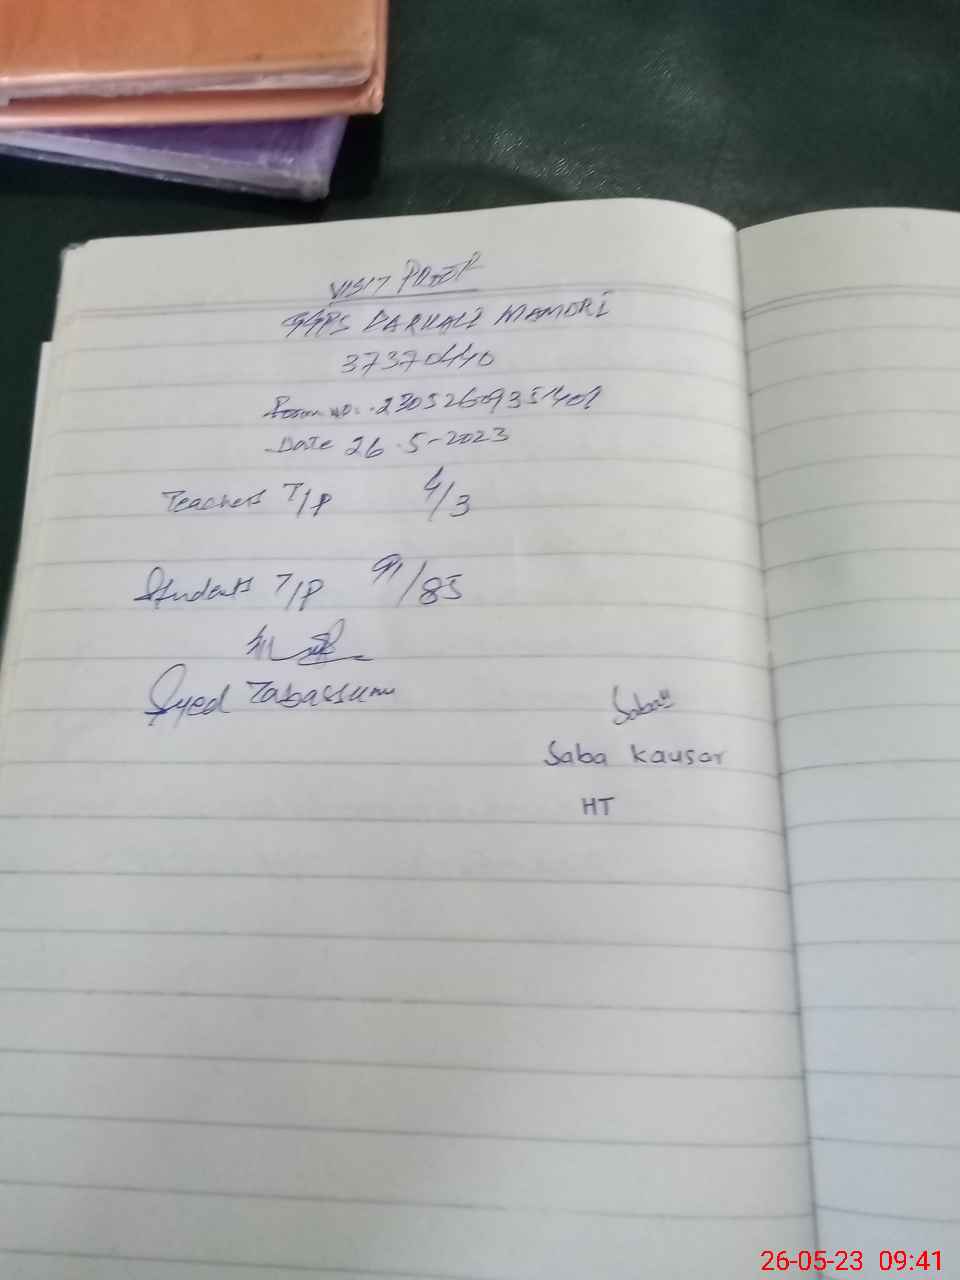 VISIT PROOF
GGPS DARKALI MAMORI
37370440
Form no: 2305260935401
Date 26-5-2023
Teachers T/P 4/3
Students T/P 91/85
Syed Tabassum
Saba
Saba Kausar
HT
26-05-23 09:41